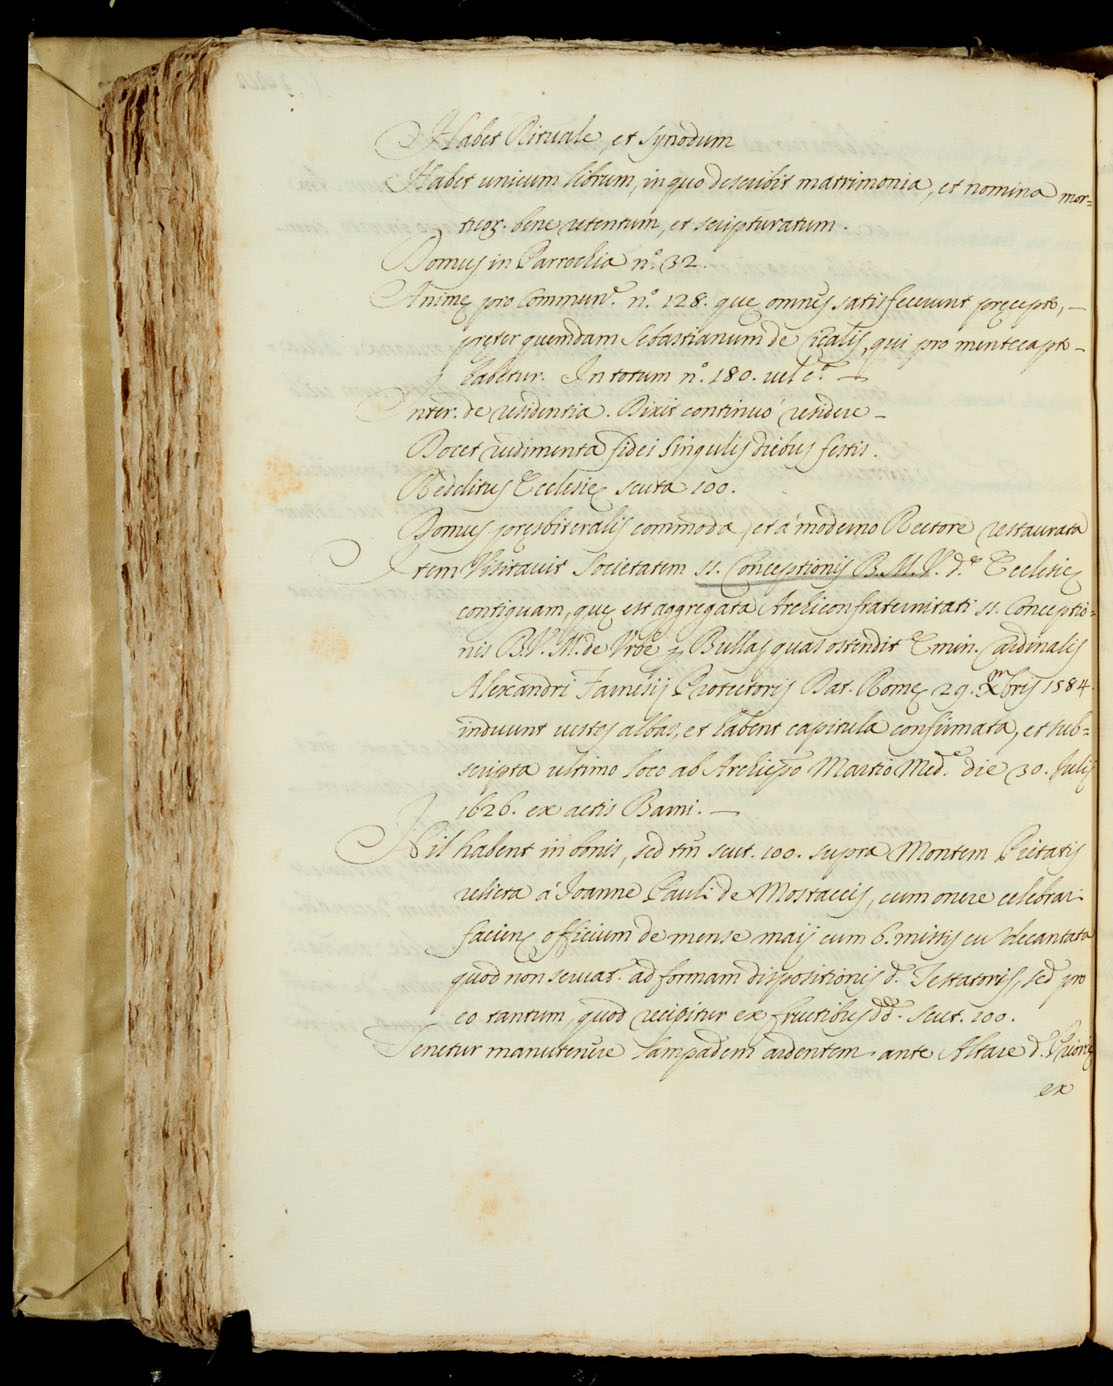 Habet Rituale, et synodum
Habet unicum librum, in quo describit matrimonia, et nomina mor=
tuor. bene retentum, et scripturatum.
Domus in Parrochia n.º 32.
Animę pro Commun.e n.º 128. quę omnes satisfecerunt pręcepto, —
pręter quemdam Sebastianum de Cicalis, qui pro mentecapto —
habetur. In totum n.º 180. vel c.ª —
Inter. de residentia. Dixit continuò residere —
Docet rudimenta fidei singulis diebus festis.
Redditus Ecclesię scuta 100.
Domus pręsbiteralis commoda, et à moderno Rectore restaurata
Item Visitavit Societatem ss. Conceptionis B. M. V. d.ę Ecclesię
contiguam, quę est aggregata Archiconfraternitati ss. Conceptio=
nis B. V. M. de Urbe p Bullas quas ostendit Emin. Cardinalis
Alexandri Farnesij Protectoris Dat. Romę 29. Xbris 1584.
induunt vestes albas, et habent capitula confirmata, et sub=
scripta ultimo loco ab Archiepo Martio Med.e die 30. Julij
1626. ex actis Bami. —
Nil habent in bonis, sed tm scut. 100. supra Montem Pietatis
relicta à Joanne Pauli de Mostaccis, cum onere celebrar.
faciend officium de mense maij cum 6. missis cu decantata
quod non servat. ad formam dispositionis d. Testatoris, sed pro
eo tantum, quod recipitur ex fructibus dd. scut. 100.
Tenetur manutenere lampadem ardentem ante Altare d.
ex